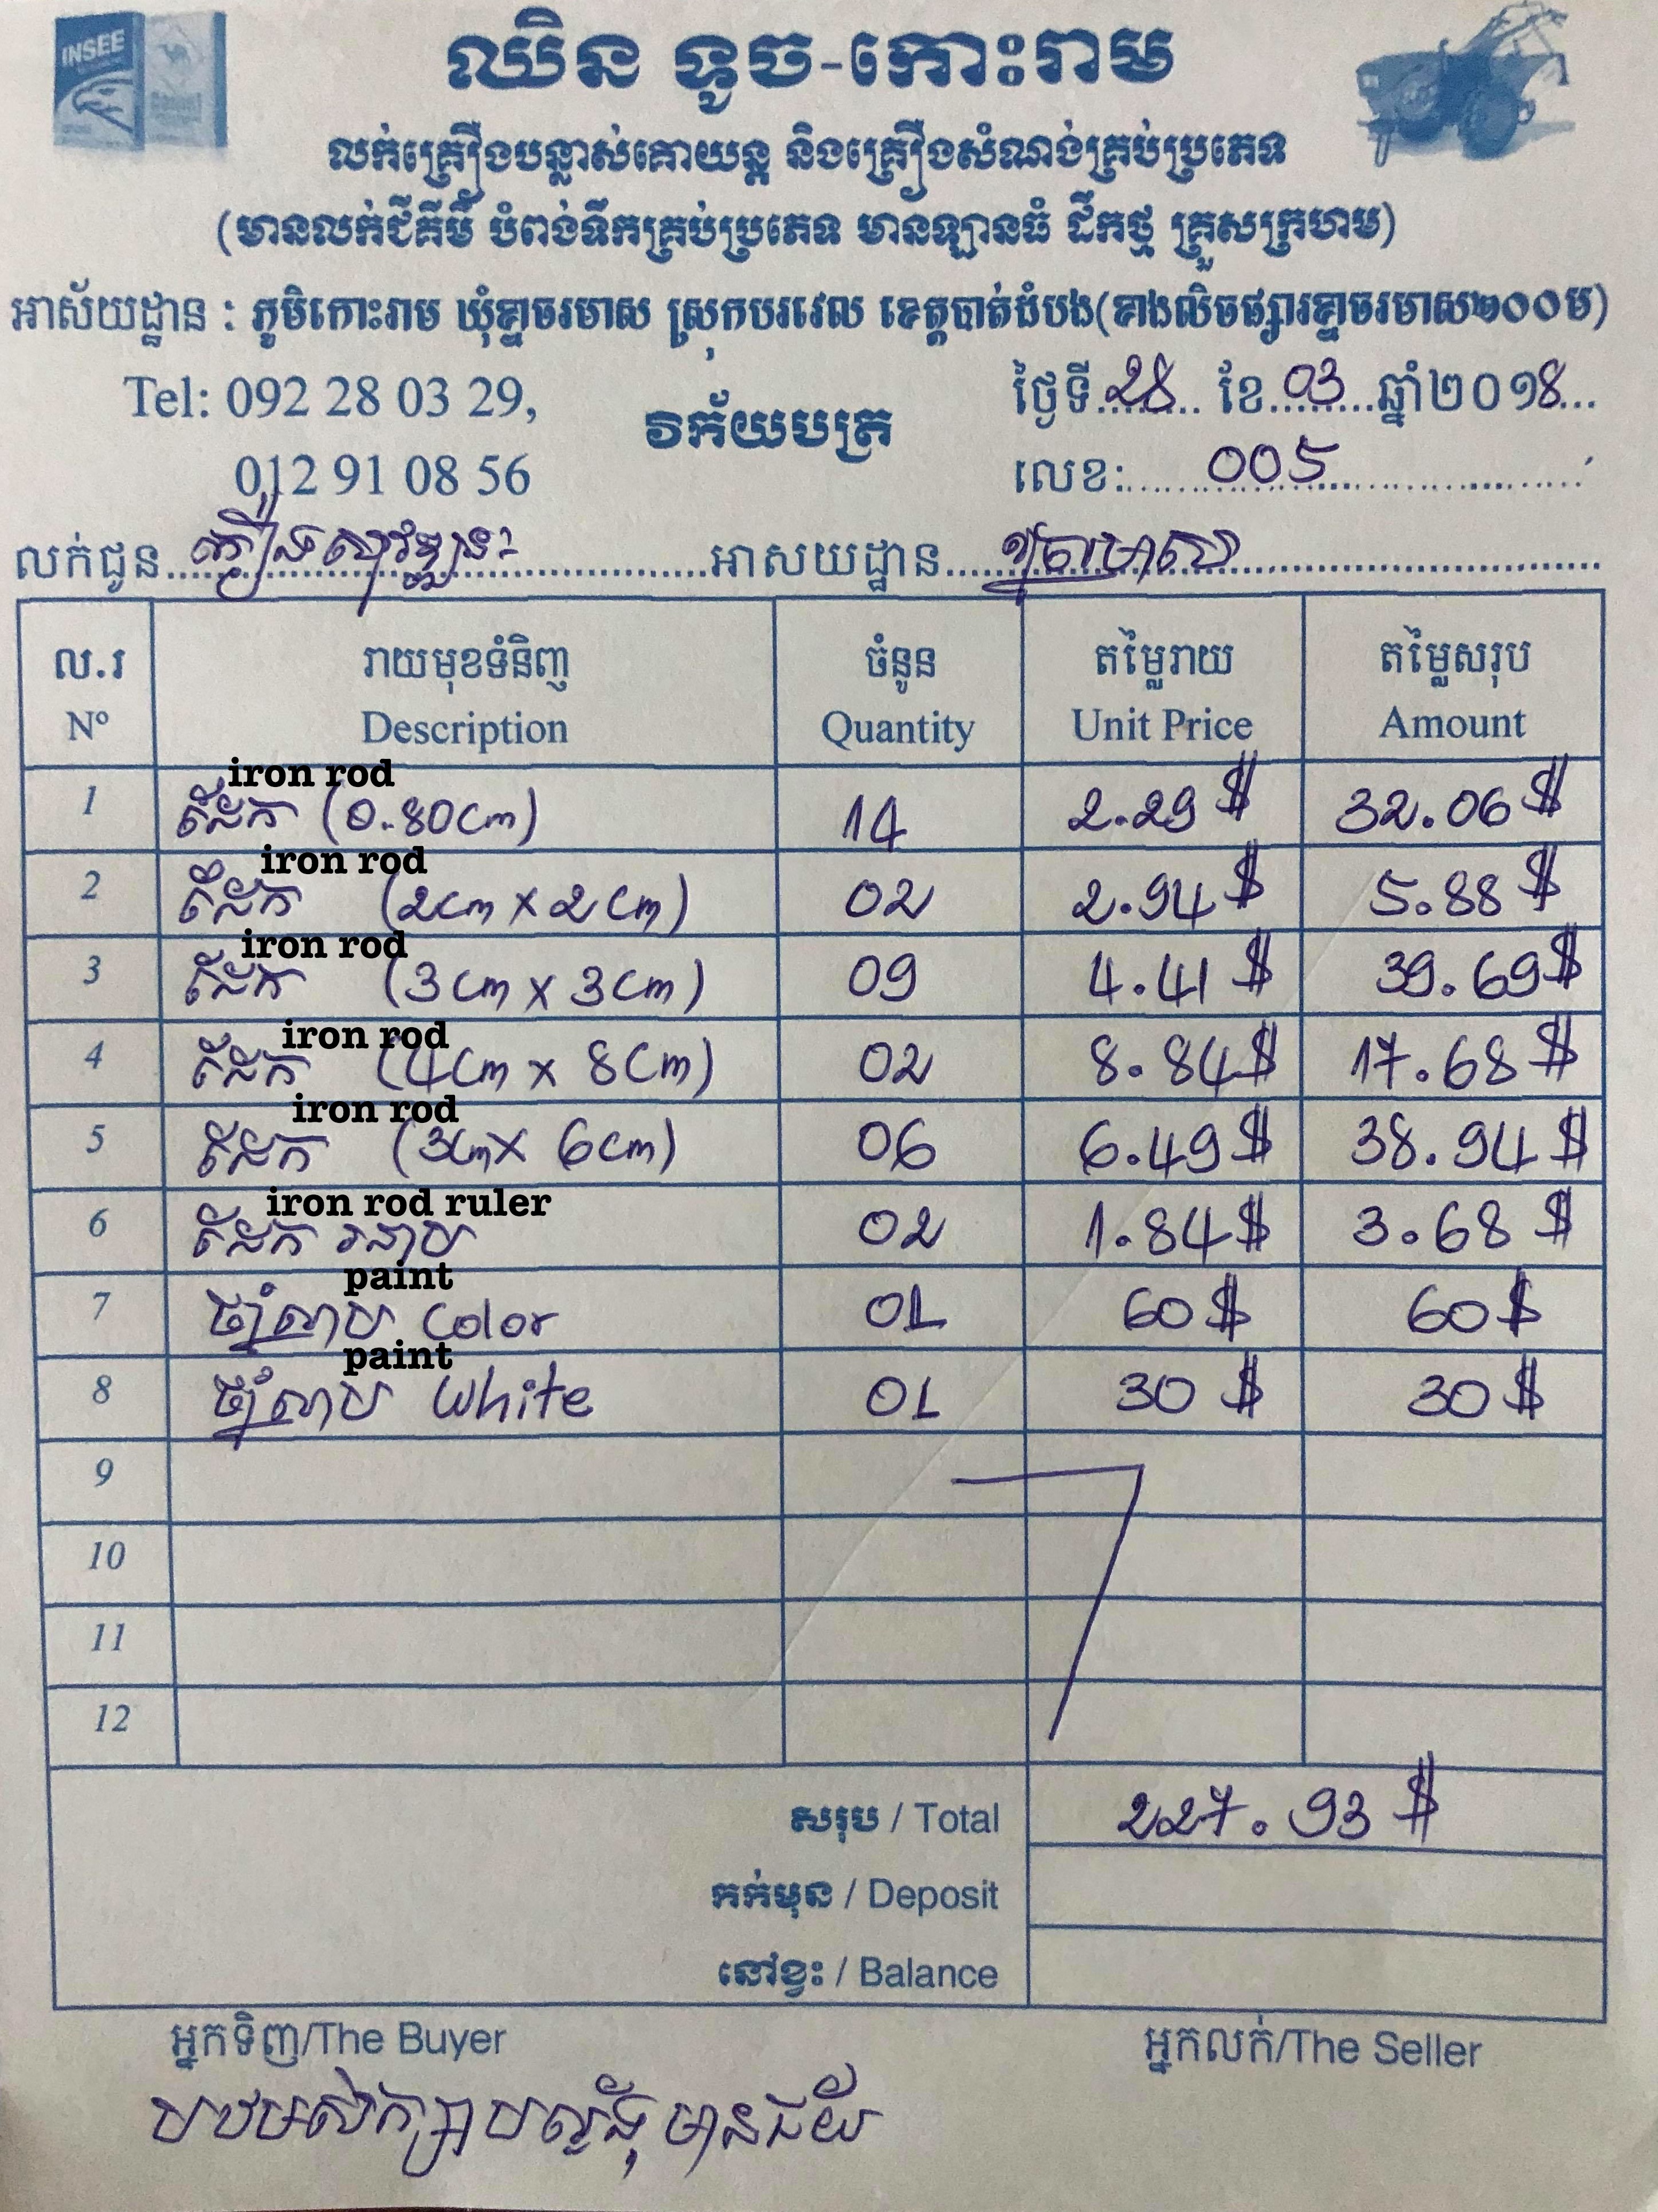 INSEE
ឈិន ទូច-កោះរាម
លក់គ្រឿងបន្លាស់គោយន្ត និងគ្រឿងសំណង់គ្រប់ប្រភេទ
(មានលក់ជីគីមី បំពង់ទឹកគ្រប់ប្រភេទ មានឡានធំ ដឹកថ្ម គ្រួសក្រហម)
អាស័យដ្ឋាន : ភូមិកោះរាម ឃុំខ្នាចរមាស ស្រុកបរវេល ខេត្តបាត់ដំបង(ខាងលិចផ្សារខ្នាចរមាស២០០ម)
Tel: 092 28 03 29,
012 91 08 56
វិក័យបត្រ
ថ្ងៃទី 28 ខែ 03 ឆ្នាំ២០១8
លេខ: 005
លក់ជូន អាសយដ្ឋាន
ល.រ រាយមុខទំនិញ ចំនួន តម្លៃរាយ តម្លៃសរុប
Nº Description Quantity Unit Price Amount
iron rod
1 ដែក (0.80cm) 14 2.29 $ 32.06 $
iron rod
2 ដែក (2cm x 2cm) 02 2.94 $ 5.88 $
iron rod
3 ដែក (3cm x 3cm) 09 4.41 $ 39.69 $
iron rod
4 ដែក (4cm x 8cm) 02 8.84 $ 17.68 $
iron rod
5 ដែក (3cm x 6cm) 06 6.49 $ 38.94 $
iron rod ruler
6 ដែក 02 1.84 $ 3.68 $
paint
7 ថ្នាំលាប color 01 60 $ 60 $
paint
8 ថ្នាំលាប white 01 30 $ 30 $
9
10
11
12
សរុប / Total 227.93 $
កក់មុន / Deposit
នៅខ្វះ / Balance
អ្នកទិញ/The Buyer អ្នកលក់/The Seller